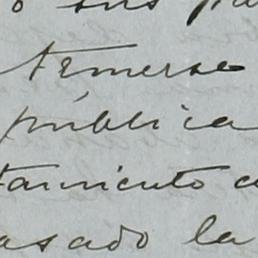 o sus
temerse
pública
tamiento
asado la